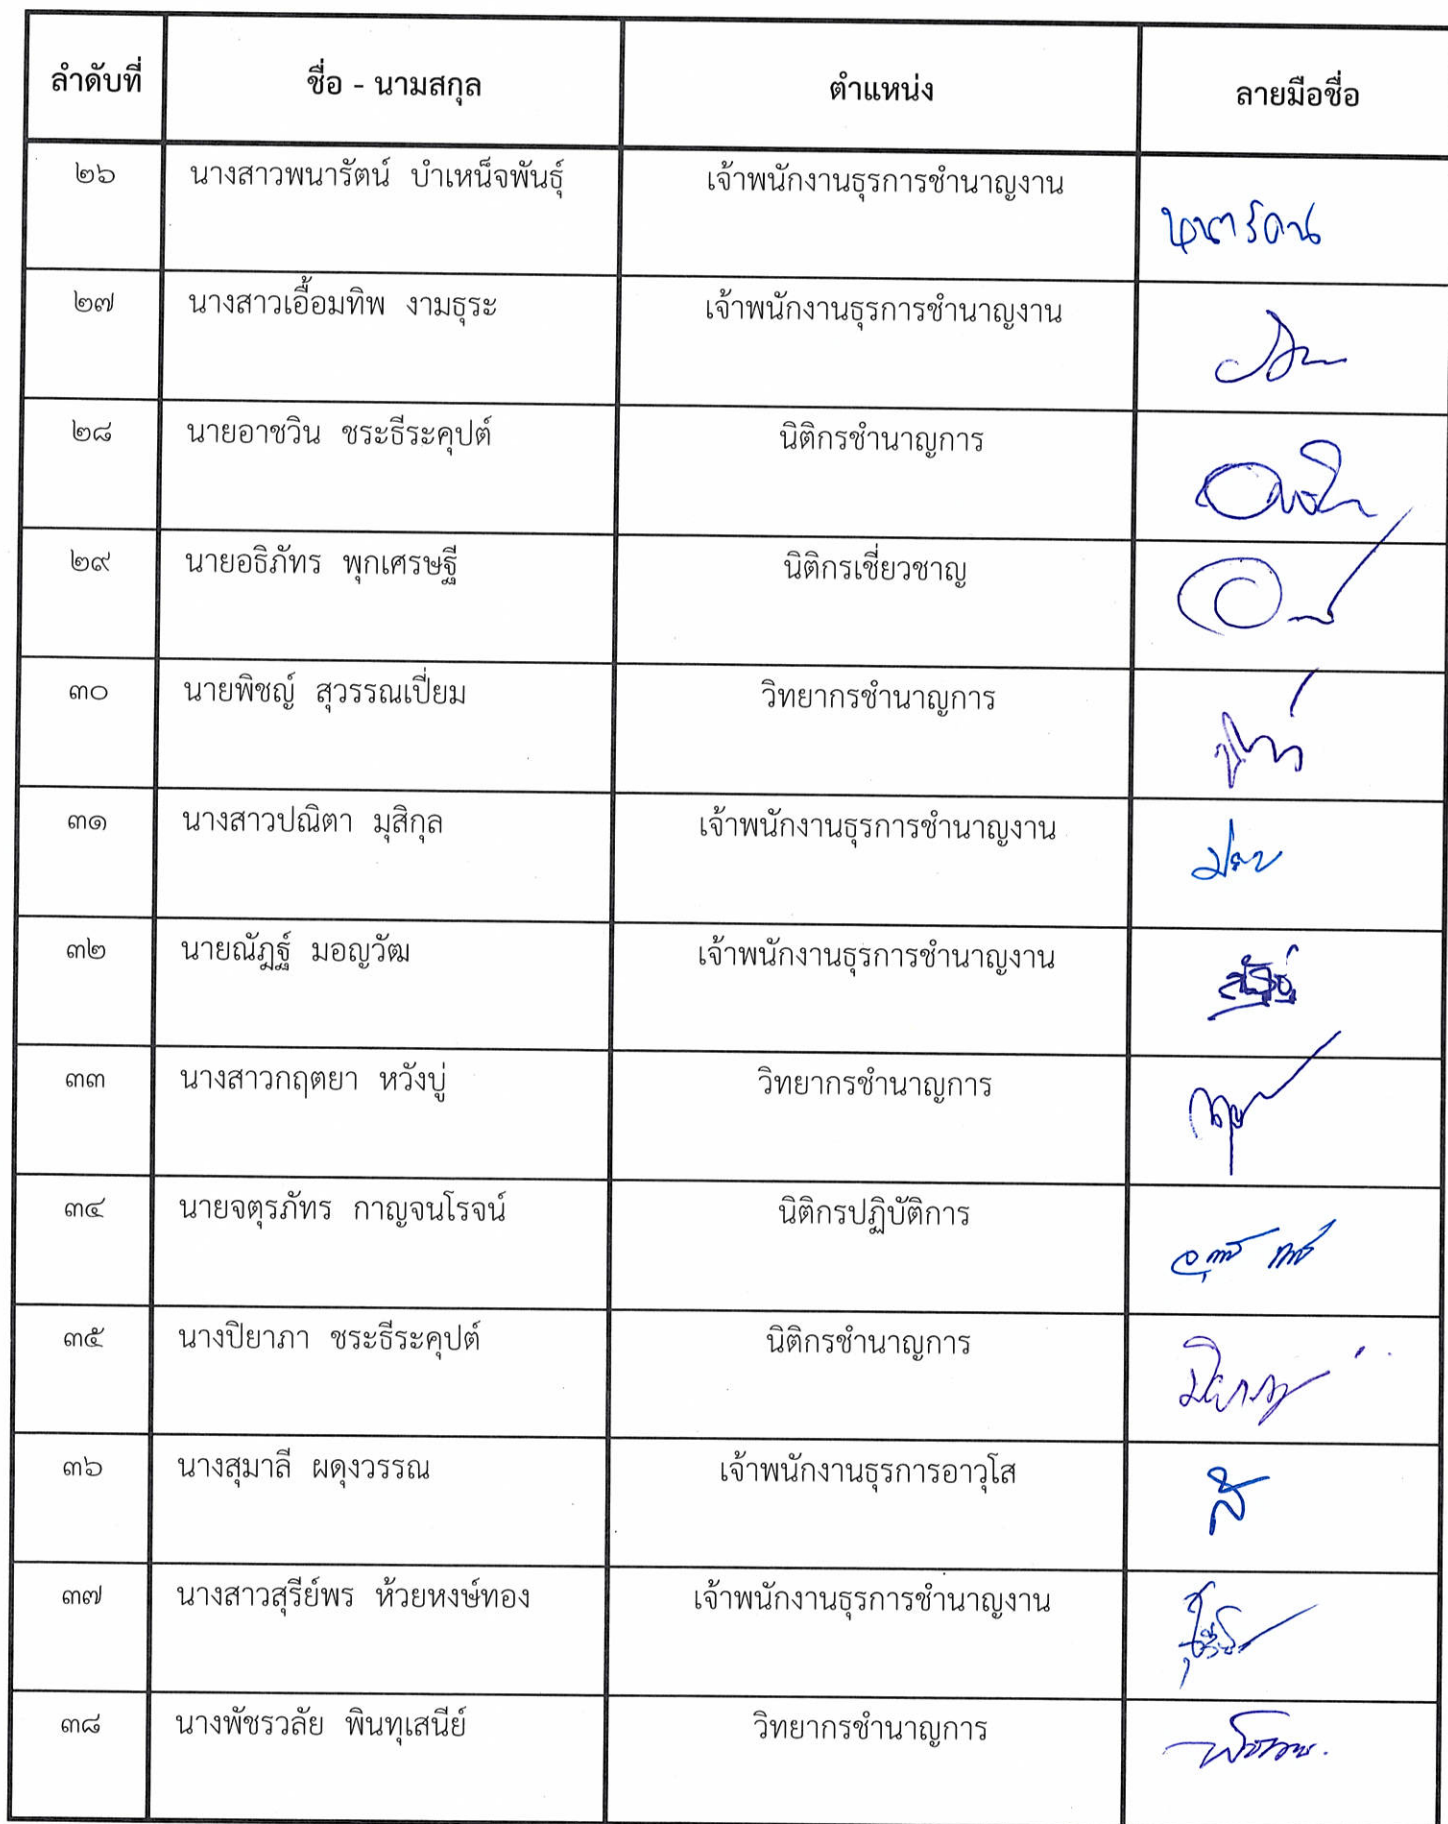 ลำดับที่ ชื่อ - นามสกุล ตำแหน่ง ลายมือชื่อ
๒๖ นางสาวพนารัตน์ บำเหน็จพันธุ์ เจ้าพนักงานธุรการชำนาญงาน
๒๗ นางสาวเอื้อมทิพ งามธุระ เจ้าพนักงานธุรการชำนาญงาน
๒๘ นายอาชวิน ชระธีระคุปต์ นิติกรชำนาญการ
๒๙ นายอธิภัทร พุกเศรษฐี นิติกรเชี่ยวชาญ
๓๐ นายพิชญ์ สุวรรณเปี่ยม วิทยากรชำนาญการ
๓๑ นางสาวปณิตา มุสิกุล เจ้าพนักงานธุรการชำนาญงาน
๓๒ นายณัฎฐ์ มอญวัฒ เจ้าพนักงานธุรการชำนาญงาน
๓๓ นางสาวกฤตยา หวังบู่ วิทยากรชำนาญการ
๓๔ นายจตุรภัทร กาญจนโรจน์ นิติกรปฏิบัติการ
๓๕ นางปิยาภา ชระธีระคุปต์ นิติกรชำนาญการ
๓๖ นางสุมาลี ผดุงวรรณ เจ้าพนักงานธุรการอาวุโส
๓๗ นางสาวสุรีย์พร ห้วยหงษ์ทอง เจ้าพนักงานธุรการชำนาญงาน
๓๘ นางพัชรวลัย พินทุเสนีย์ วิทยากรชำนาญการ